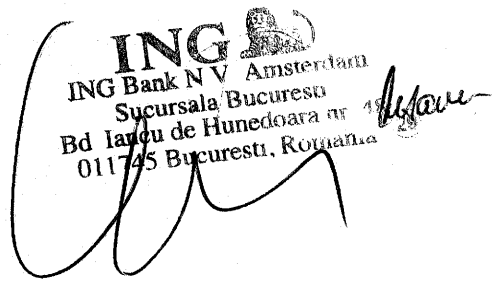 ING
ING Bank N V Amsterdam
Sucursala Bucuresti
Bd Iancu de Hunedoara nr
011745 Bucuresti, Romania